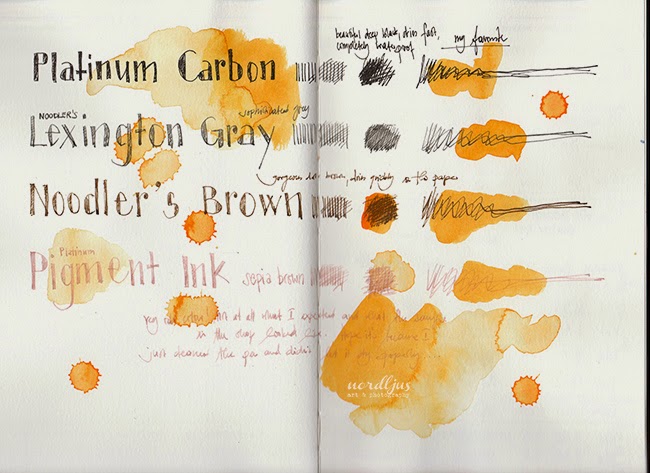 beautiful deep black, dries fast,
completely waterproof
my favorite
Platinum Carbon
sophisticated grey
NOODLER'S
Lexington Gray
gorgeous brown, dries quickly on the paper
Noodler's Brown
Platinum
Pigment Ink sepia brown
not at all what I expected and what the
in the shop looked like. because I
just cleaned the pen and didn't
nordljus
art & photography